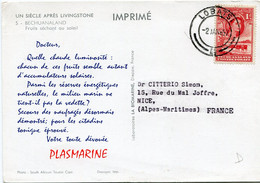 UN SIÈCLE APRÈS LIVINGSTONE
5 - BECHUANALAND
Fruits séchant au soleil
IMPRIMÉ
Docteur,
Quelle chaude luminosité :
chacun de ces fruits semble autant
d'accumulateurs solaires.
Parmi les réserves énergétiques
naturelles, le milieu marin ne
tient-il pas la vedette ?
Secours des naufragés désormais
démontré ; pour les citadins
tonique éprouvé.
Votre toute dévouée
PLASMARINE
Dr CITTERIO Simon,
15, Rue du Mal Joffre,
NICE,
(Alpes-Maritimes) FRANCE